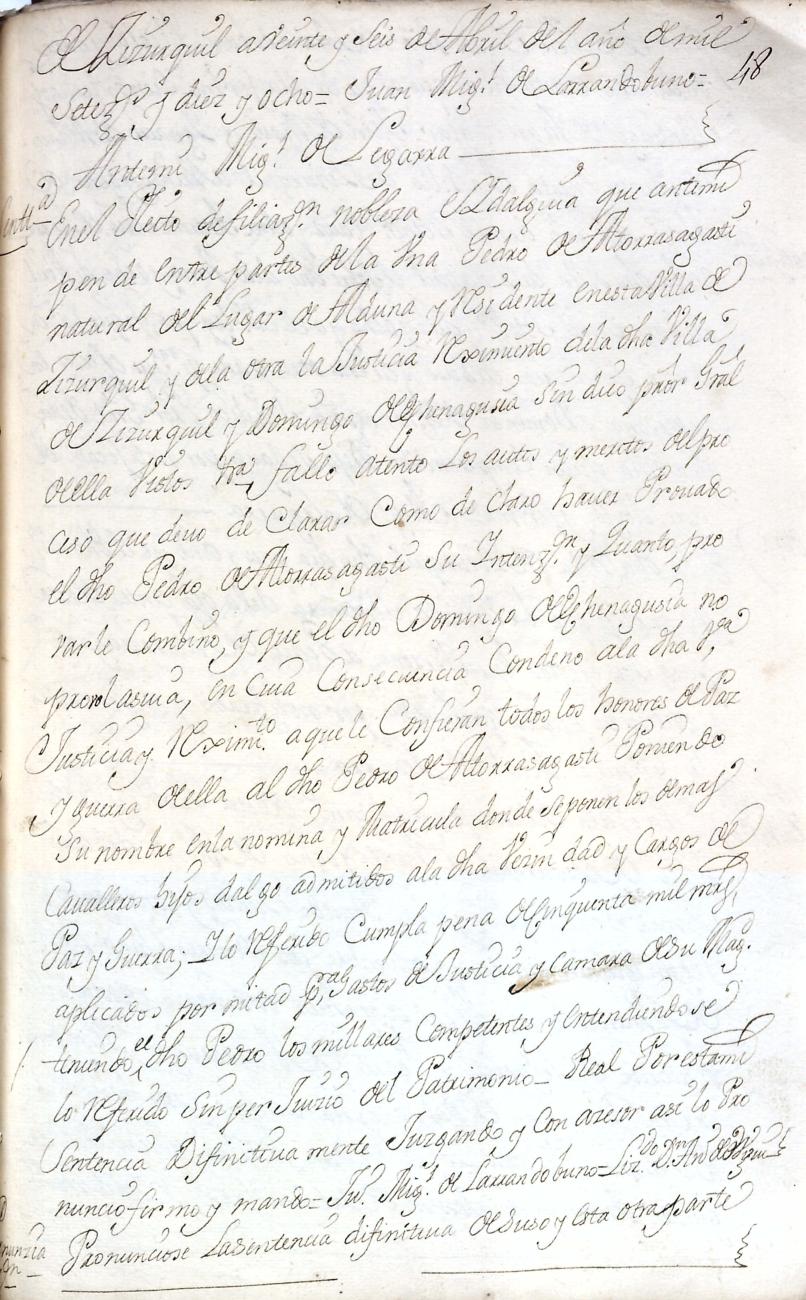 de Lizurquil a Veinte y Seis de Abril del año de mil
Setezs y diez y ocho = Juan Migl de Larrandobuno =
48
Antemi Migl de Legarra
Senttª
En el Pleito de filiazn nobleza e Hidalguia que antemi
pende entre partes de la Vna Pedro de Atorrasagasti
natural del Lugar de Alduna y Residente en esta Villa de
Lizurquil y de la otra la Justicia Reximiento de la dha Villa
de Lizurquil y Domingo de Echenagusia Sindico pror Gral
de ella Vistos &ra fallo atento los autos y meritos del pro
ceso que devo de Clarar Como de claro haver Provado
el dho Pedro de Atorrasagasti Su Intenzn y Quanto pro
varle Combino, y que el dho Domingo de Echenagusia no
provo la suia, en Cuia Consecuencia Condeno a la dha Vª
Justicia y Reximto a que le Confieran todos los honores de Paz
y guerra de ella al dho Pedro de Atorrasagasti Poniendo
Su nombre en la nomina y Matricula donde se ponen los demas
Cavalleros hijos dalgo admitidos a la dha Vezindad y Cargos de
Paz y Guerra; Y lo Referido Cumpla pena de Cinquenta mil mrs
aplicados por mitad pª Gastos de Justicia y Camara de Su Magd
teniendo el dho Pedro los millares Competentes y entendiendose
lo Referido Sin perJuizio del Patrimonio Real Por esta mi
Sentencia Difinitiva mente Juzgando y Con azesor asi lo Pro
nuncio firmo y mando = Jun Migl de Larrandobuno = Lizdo Dn
Pronunciose La Sentencia difinitiva de Suso y esta otra parte